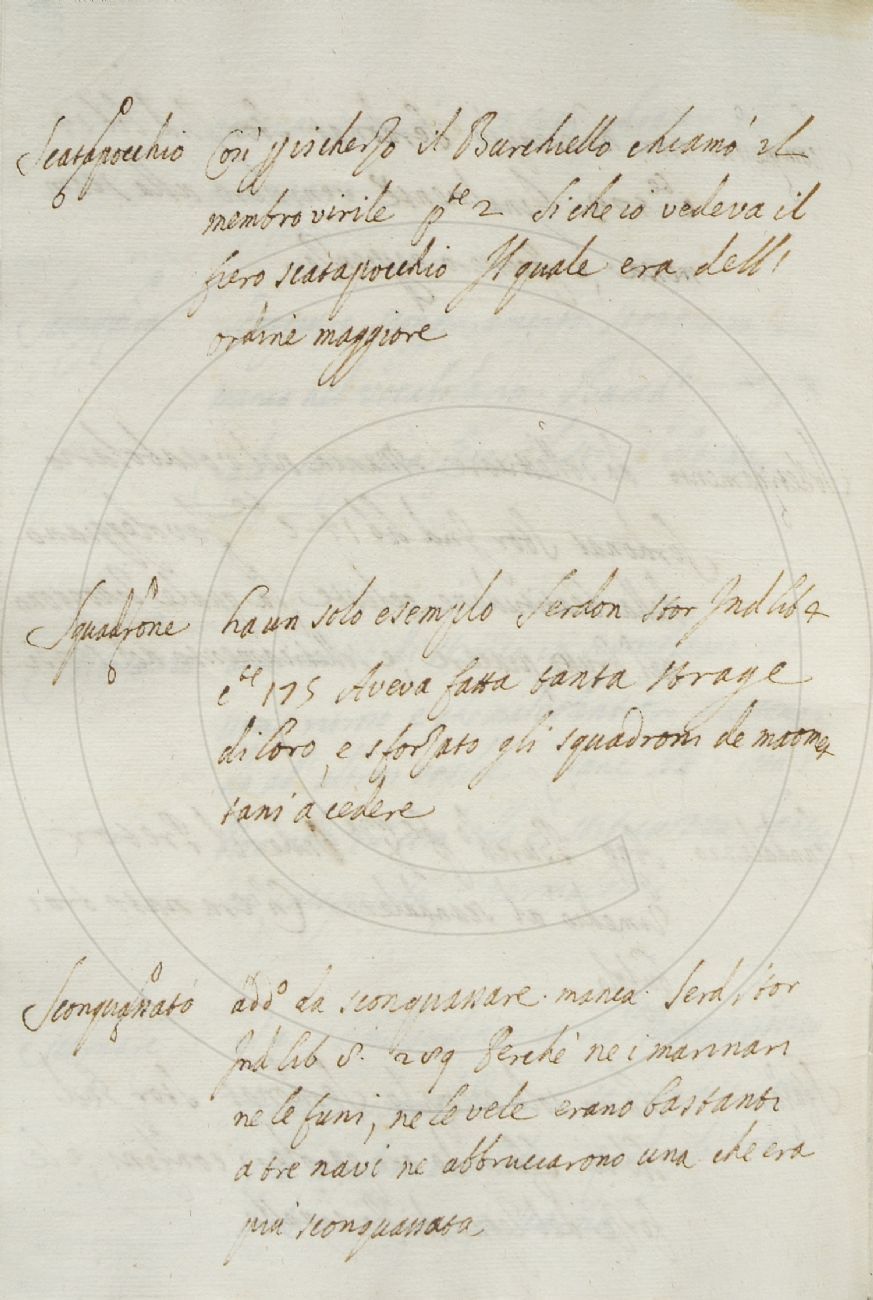 Scatapocchio Così p ischerzo il Burchiello chiamò il
membro virile pte 2 Si che io vedeva il
fiero scatapocchio Il quale era dell
ordine maggiore
Squadrone ha un solo esemplo Serdon stor Ind lib 4
cte 175 Aveva fatta tanta strage
di loro, e sforzato gli squadroni de maomet
tani a cedere
Sconquassato addo da sconquassare. manca. Serd stor
Ind lib 8. 289 Perchè ne i marinari
ne le funi, ne le vele erano bastanti
a tre navi ne abbruciarono una che era
più sconquassata